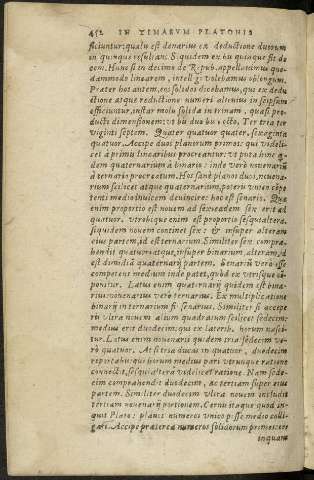 452 IN TIMAEUM PLATONIS
ficiuntur: qualis est denarius ex deductione duorum
in quinque resultans. Siquidem ex bis quinque fit de
cem. Hunc si in decimo de Repub. appellatimus quo-
dammodo linearem, intellegi volebamus oblongum.
Prater hos autem, eos solidos dicebamus, qui ex dedu
ctione atque reductione numeri alicuius in seipsum
efficiuntur, instar molis solidæ in trinam, quasi per-
ducti dimensionem: ut bis duo bis, octo. Ter tria ter
viginti septem. Quater quatuor quater, sexaginta
quatuor. Accipe duos planorum primos: qui videli-
cet à primis linearibus procreantur: ut puta hinc qui
dem quaternarium à binario: inde verò nouenariū
à ternario procreatum. Hos sanè planos duos, nouena-
rium scilicet atque quaternarium, poteris unico cōpe
tenti medio inuicem deuincire: hoc est senario. Quæ
enim proportio est nouem ad sex: eadem sex erit ad
quatuor. utrobique enim est proportio sesquialtera.
siquidem nouem continet sex: & insuper alteram
eius partem, id est ternarium. Similiter sex compræ-
hendit quatuor: atque insuper binarium, alteram, id
est dimidiā quaternarij partem. Senariū verò esse
competens medium inde patet, quòd ex utrisque cō-
ponitur. Latus enim quaternarij quidem est bina-
rius: nouenarius verò ternarius. Ex multiplicatione
binarij in ternarium fit senarius. Similiter si accepe
ris ultra nouem alium quadratum scilicet sedecim:
medius erit duodecim: qui ex laterib. horum nasci-
tur. Latus enim nouenarij quidem tria sedecim ve-
rò quatuor. At si tria ducas in quatuor, duodecim
reportabis: qui horum medius pari utrunque ratione
connectit, sesquitertia videlicet ratione. Nam sede-
cim comprahendit duodecim, ac tertiam super eius
partem. Similiter duodecim ultra nouem includit
tertiam nouenarij portionem. Cernis itaque quod in-
quit Plato: planis numeros unico posse medio colli-
gari. Accipe præterea numeros solidorum primos: eos
inquam